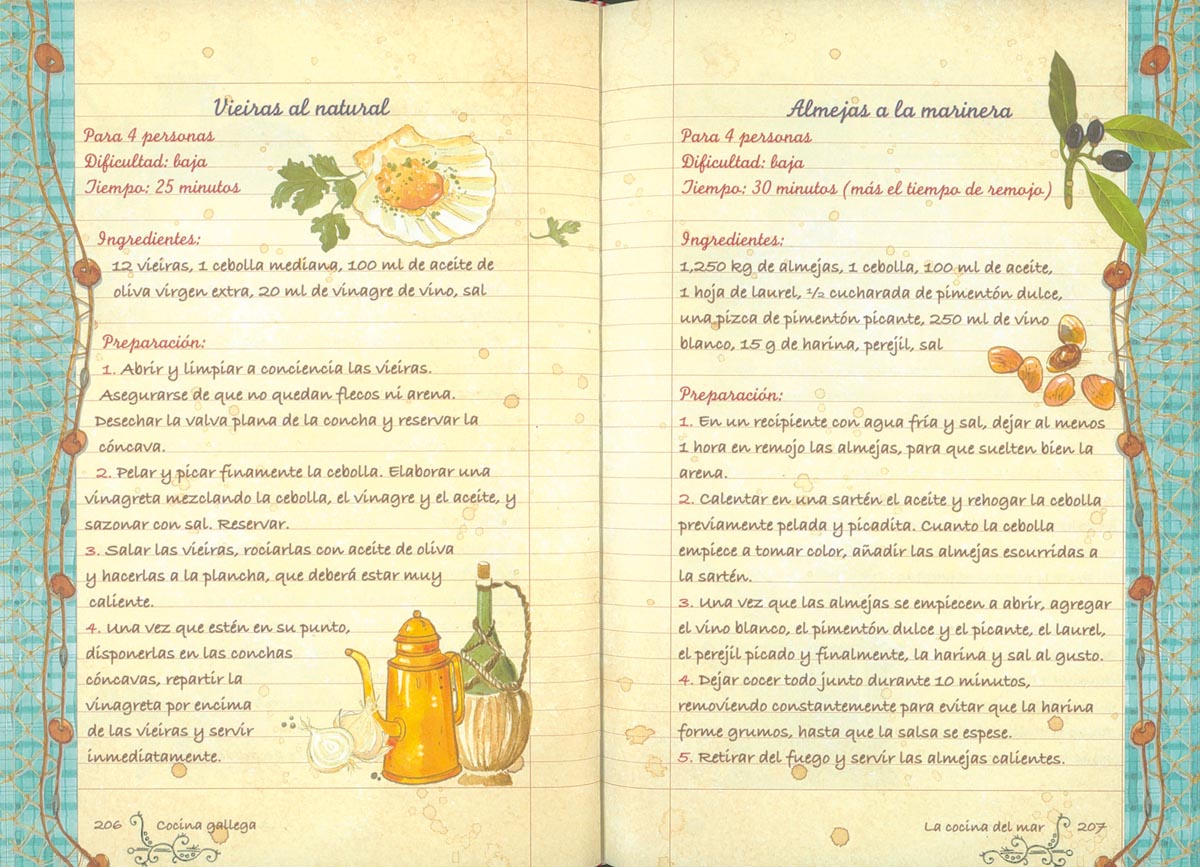 Vieiras al natural
Para 4 personas
Dificultad: baja
Tiempo: 25 minutos
Ingredientes:
12 vieiras, 1 cebolla mediana, 100 ml de aceite de
oliva virgen extra, 20 ml de vinagre de vino, sal
Preparación:
1. Abrir y limpiar a conciencia las vieiras.
Asegurarse de que no quedan flecos ni arena.
Desechar la valva plana de la concha y reservar la
cóncava.
2. Pelar y picar finamente la cebolla. Elaborar una
vinagreta mezclando la cebolla, el vinagre y el aceite, y
sazonar con sal. Reservar.
3. Salar las vieiras, rociarlas con aceite de oliva
y hacerlas a la plancha, que deberá estar muy
caliente.
4. Una vez que estén en su punto,
disponerlas en las conchas
cóncavas, repartir la
vinagreta por encima
de las vieiras y servir
inmediatamente.
206 Cocina gallega
Almejas a la marinera
Para 4 personas
Dificultad: baja
Tiempo: 30 minutos (más el tiempo de remojo)
Ingredientes:
1,250 kg de almejas, 1 cebolla, 100 ml de aceite,
1 hoja de laurel, 1/2 cucharada de pimentón dulce,
una pizca de pimentón picante, 250 ml de vino
blanco, 15 g de harina, perejil, sal
Preparación:
1. En un recipiente con agua fría y sal, dejar al menos
1 hora en remojo las almejas, para que suelten bien la
arena.
2. Calentar en una sartén el aceite y rehogar la cebolla
previamente pelada y picadita. Cuanto la cebolla
empiece a tomar color, añadir las almejas escurridas a
la sartén.
3. Una vez que las almejas se empiecen a abrir, agregar
el vino blanco, el pimentón dulce y el picante, el laurel,
el perejil picado y finalmente, la harina y sal al gusto.
4. Dejar cocer todo junto durante 10 minutos,
removiendo constantemente para evitar que la harina
forme grumos, hasta que la salsa se espese.
5. Retirar del fuego y servir las almejas calientes.
La cocina del mar 207